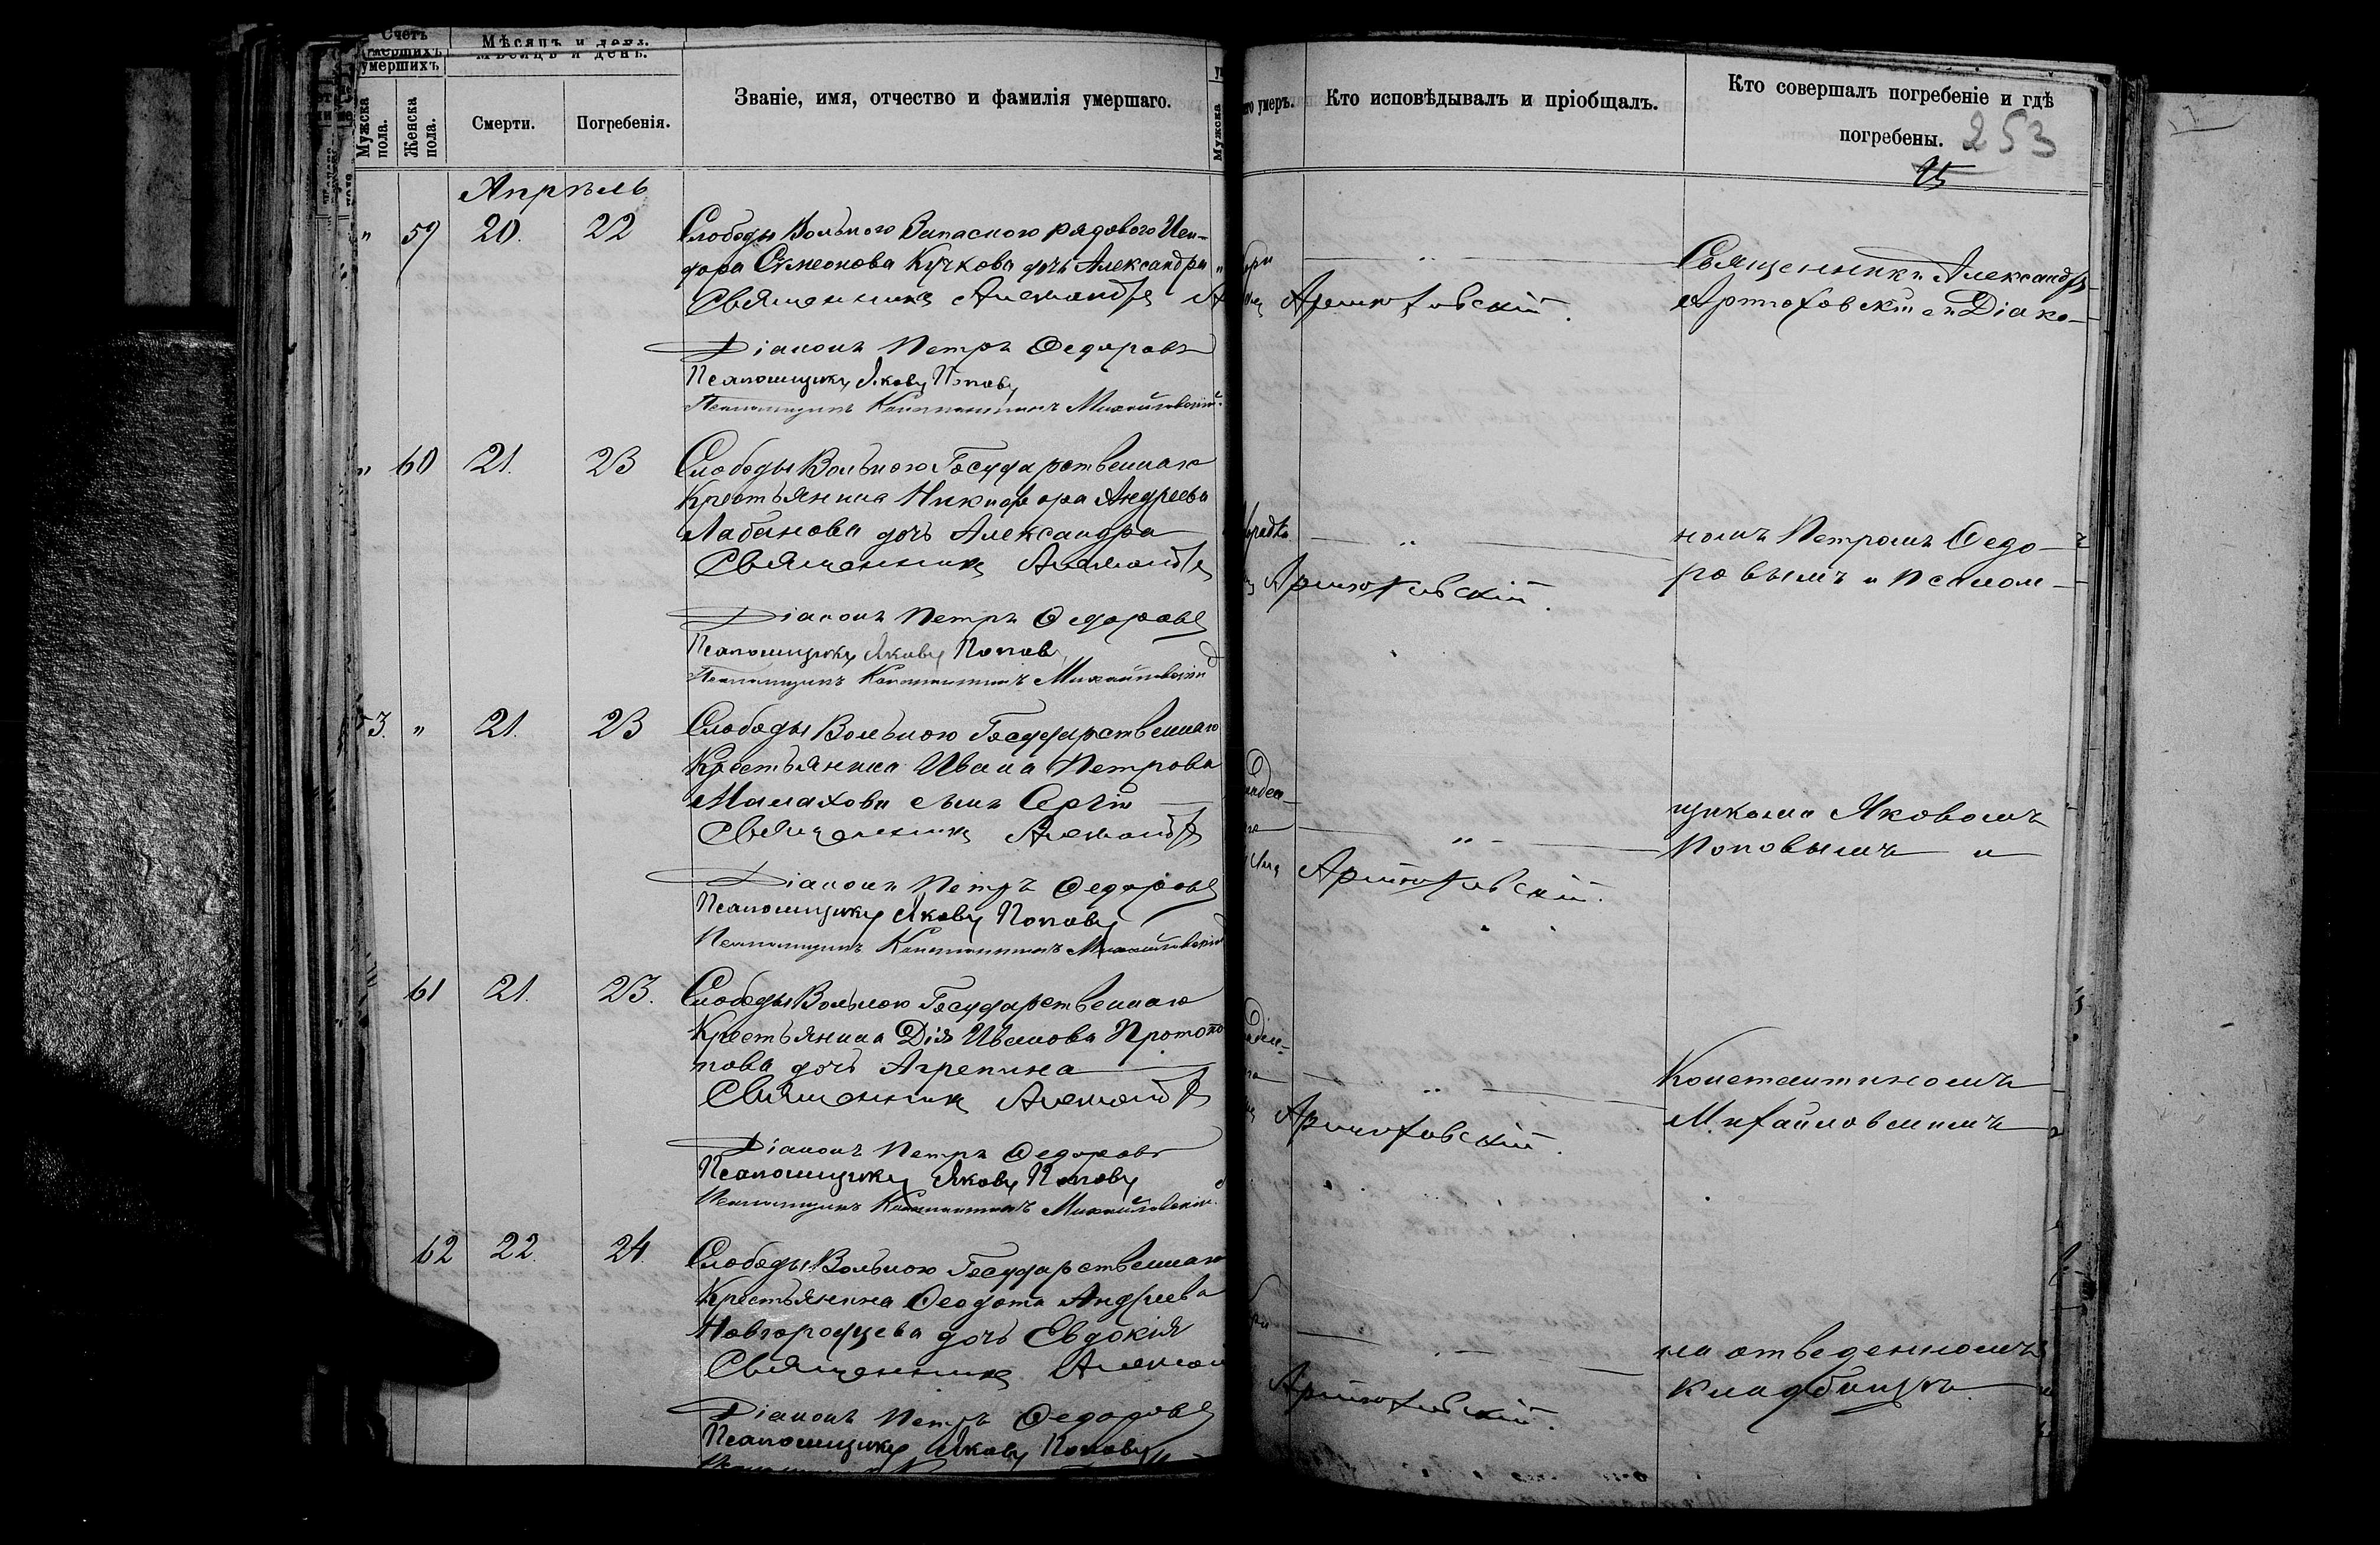 Счетъ
умершихъ
умершихъ
Мѣсяцъ и день.
Мѣсяцъ и день.
Мужска пола.
Женска пола.
Смерти.
Погребенія.
Званіе, имя, отчество и фамилія умершаго.
Мужска
го умеръ.
Кто исповѣдывалъ и пріобщалъ.
Кто совершалъ погребеніе и гдѣ
погребены.
253
Апрѣль
" 59 20. 22 Слободы Вольного Запасного рядового Иси-
дора Симеонова Кучкова дочь Александра
Священникъ Александръ Артюховскій.
Діаконъ Петръ Ѳедоровъ
Псаломщикъ Яковъ Поповъ
Псаломщикъ Константинъ Михайловскій.
Священникъ Александръ
Артюховскій съ Діако-
" 60 21. 23 Слободы Вольного Государственнаго
Крестьянина Никифора Андреева
Лабанова дочь Александра
Священникъ Александръ Артюховскій.
Діаконъ Петръ Ѳедоровъ
Псаломщикъ Яковъ Поповъ
Псаломщикъ Константинъ Михайловскій
номъ Петромъ Ѳедо-
ровымъ и Псалом-
53. " 21. 23 Слободы Вольного Государственнаго
Крестьянина Ивана Петрова
Малахова сынъ Сергій
Священникъ Александръ Артюховскій.
Діаконъ Петръ Ѳедоровъ
Псаломщикъ Яковъ Поповъ
Псаломщикъ Константинъ Михайловскій
щиками Яковомъ
Поповымъ и
61 21. 23. Слободы Вольного Государственнаго
Крестьянина Дія Иванова Протопо
пова дочь Агрепина
Священникъ Александръ Артюховскій.
Діаконъ Петръ Ѳедоровъ
Псаломщикъ Яковъ Поповъ
Псаломщикъ Константинъ Михайловскій.
Константиномъ
Михайловскимъ
62 22. 24. Слободы Вольного Государственнаго
Крестьянина Ѳеодота Андреева
Новгородцева дочь Евдокія
Священникъ Артюховскій.
Діаконъ Петръ Ѳедоровъ
Псаломщикъ Яковъ Поповъ
на отведенномъ
кладбищѣ.